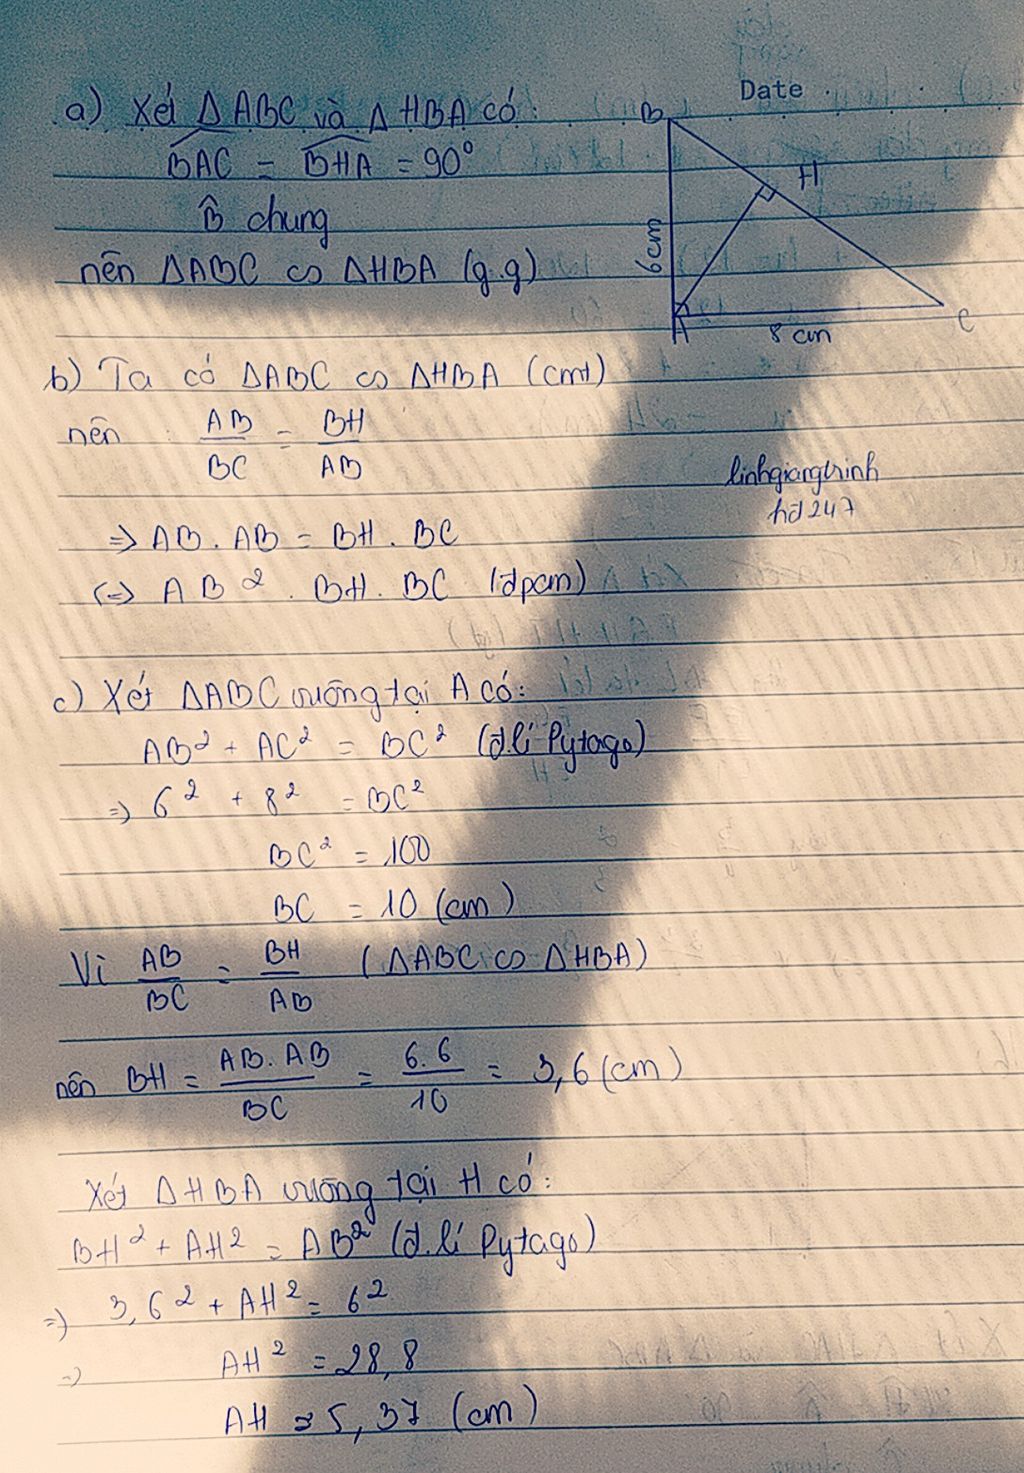 Date
a) Xét ∆ ABC và ∆ HBA có:
BAC = BHA = 90°
B̂ chung
nên ∆ABC ∽ ∆HBA (g.g)
B
H
6cm
A
8 cm
C
b) Ta có ∆ABC ∽ ∆HBA (cmt)
nên AB/BC = BH/AB
linhgiangtrinh
hd247
=> AB. AB = BH. BC
<=> AB². BH. BC (đpcm)
c) Xét ∆ABC vuông tại A có:
AB² + AC² = BC² (đ.lí Pytago)
=> 6² + 8² = BC²
BC² = 100
BC = 10 (cm)
Vì AB/BC = BH/AB (∆ABC ∽ ∆HBA)
nên BH = AB. AB/BC = 6.6/10 = 3,6 (cm)
Xét ∆HBA vuông tại H có:
BH² + AH² = AB² (đ.lí Pytago)
=> 3,6² + AH² = 6²
=> AH² = 28,8
AH ≈ 5,37 (cm)